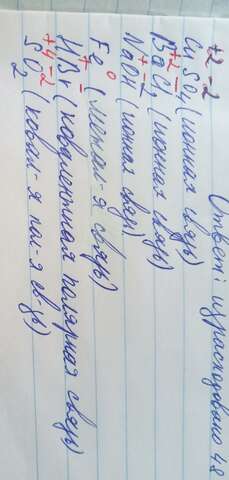 Ответ: израсходовано 48
+2 -2
CuSO4 (ионная связь)
+2 -
BaCl (ионная связь)
+ -2
NaOH (ионная связь)
0
Fe (метал-я связь)
+ -
HBr (ковалентная полярная связь)
+4 -2
SO2 (ковал-я пол-я св-зь)